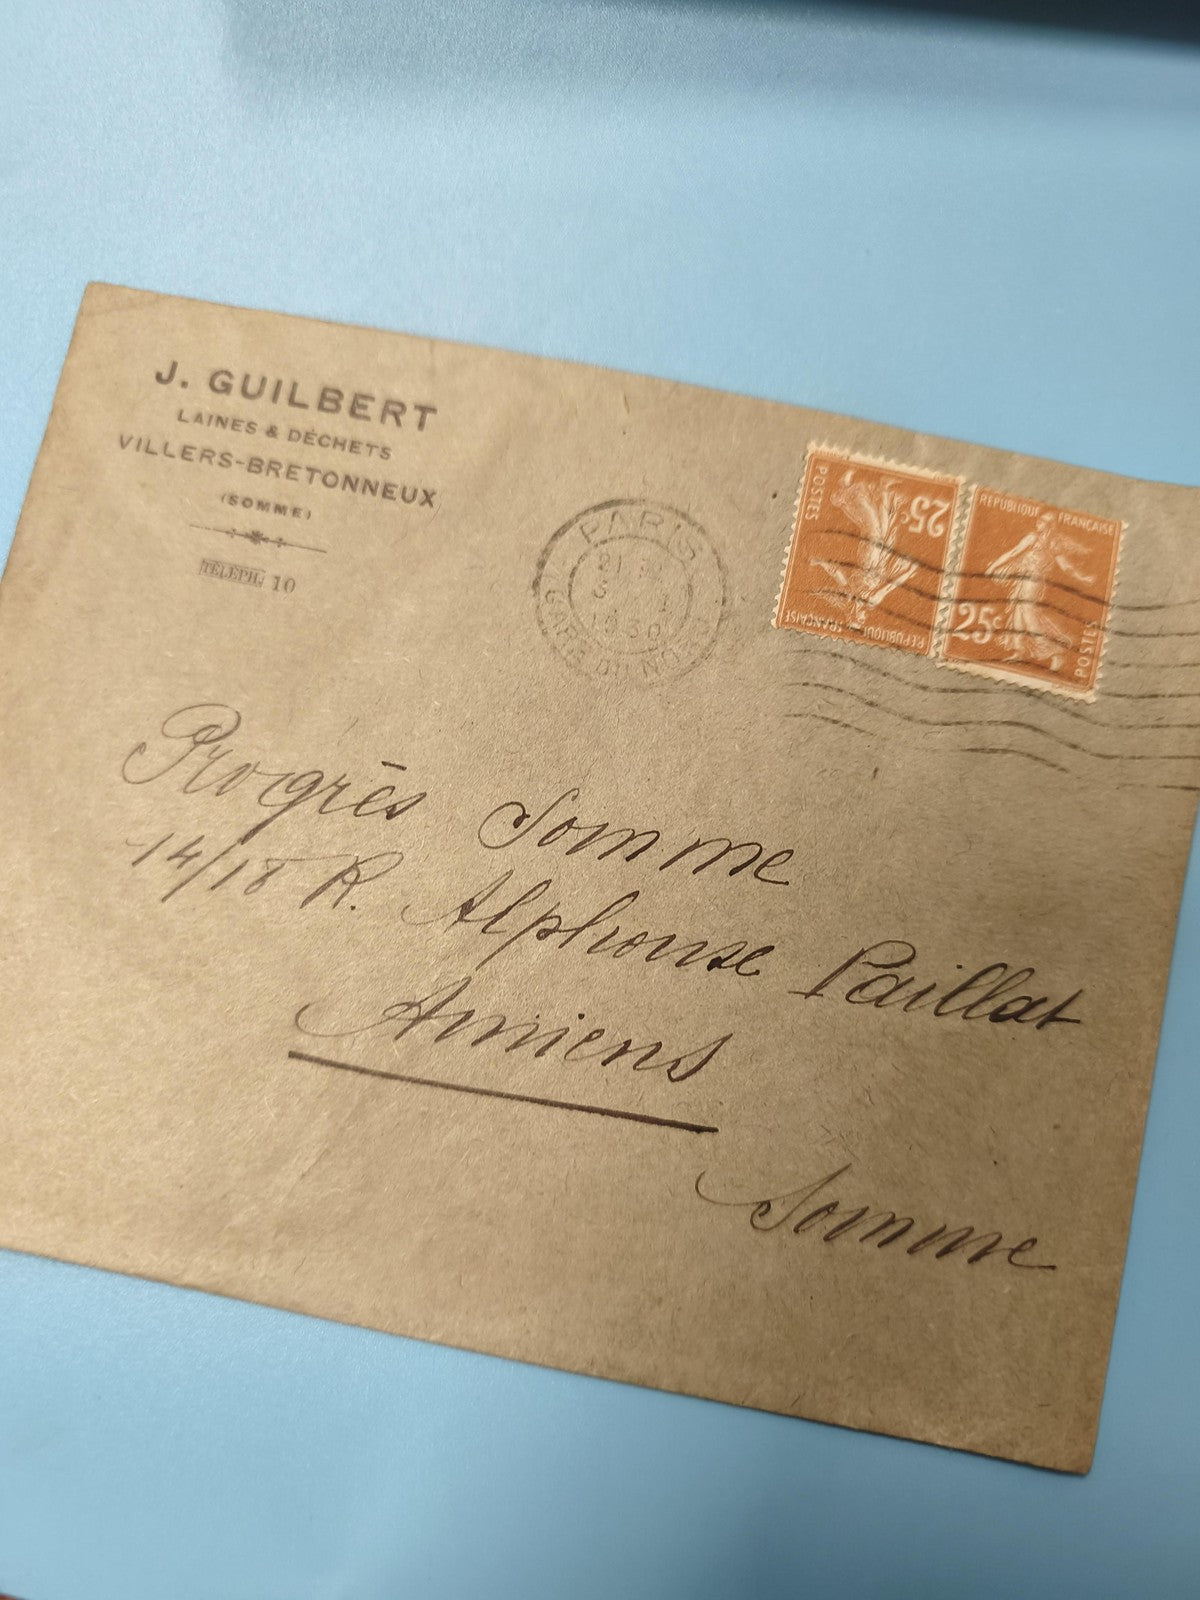 J. GUILBERT
LAINES & DÉCHETS
VILLERS-BRETONNEUX
(SOMME)
TÉLÉPH. 10
PARIS
1930
GARE DU NORD
POSTES
25c
RÉPUBLIQUE FRANÇAISE
RÉPUBLIQUE FRANÇAISE
25c
POSTES
Progrès Somme
14/18 R. Alphonse Paillat
Amiens
Somme